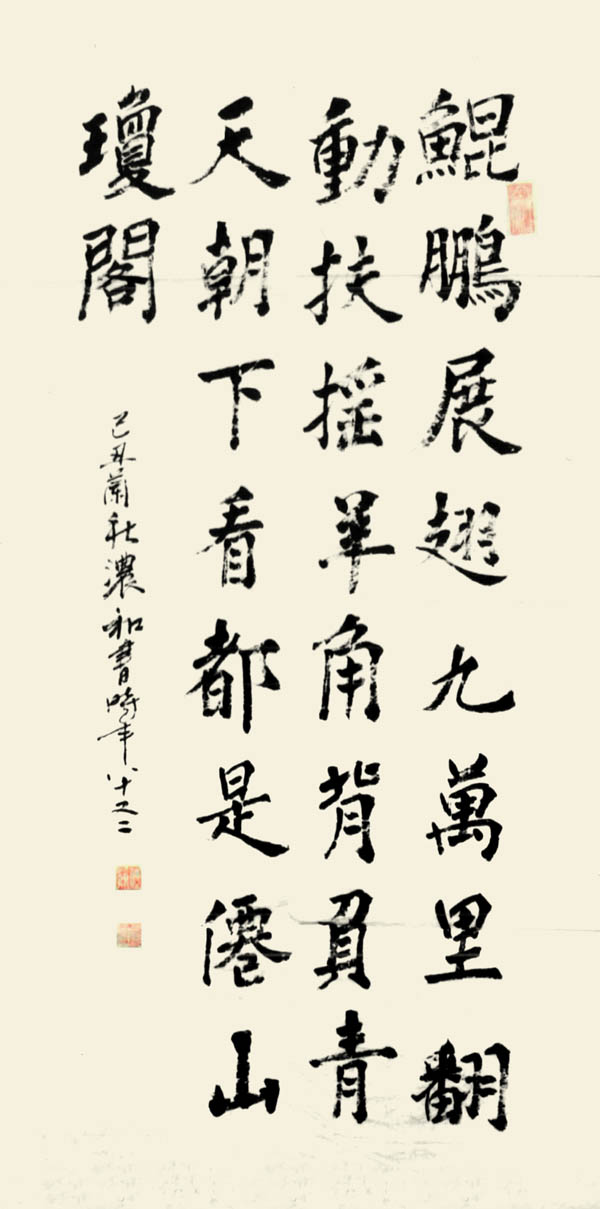 鯤鵬展翅九萬里翻
動扶摇羊角背負青
天朝下看都是僊山
瓊閣
己丑蘭秋濃和書時年八十又二